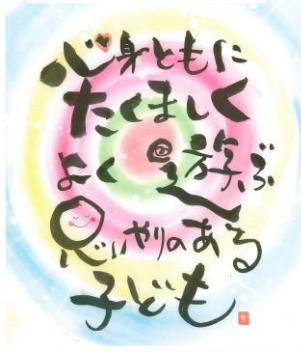 心身ともに
たくましく
よく遊ぶ
思いやりのある
子ども